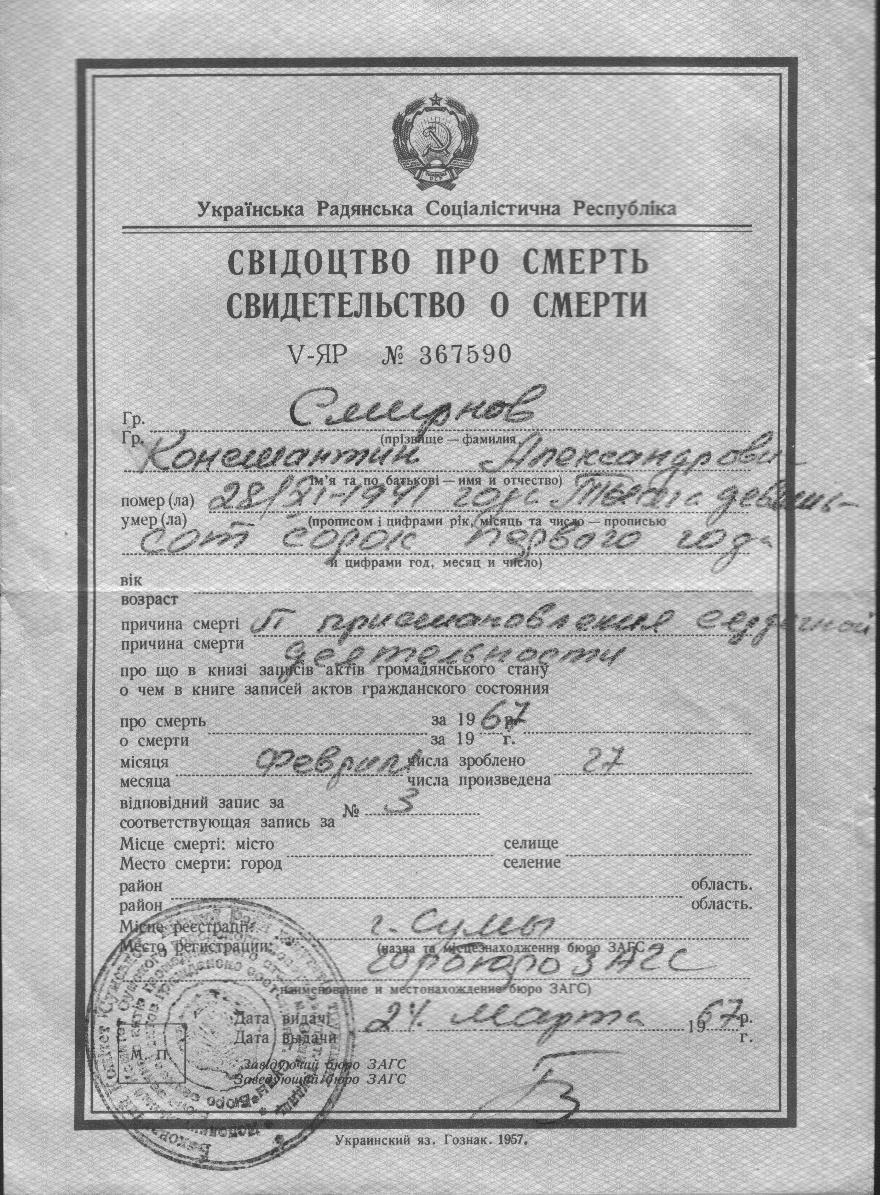 Українська Радянська Соціалістична Республіка
СВІДОЦТВО ПРО СМЕРТЬ
СВИДЕТЕЛЬСТВО О СМЕРТИ
V-ЯР № 367590
Гр. Смирнов
Гр. (прізвище — фамилия
Константин Александрович
ім’я та по батькові — имя и отчество)
помер (ла) 28/XI-1941 года Тысяча девять-
умер (ла) (прописом і цифрами рік, місяць та число — прописью
сот сорок первого года
и цифрами год, месяц и число)
вік
возраст
причина смерті приостановления сердечной
причина смерти деятельности
про що в книзі записів актів громадянського стану
о чем в книге записей актов гражданского состояния
про смерть за 1967 р.
о смерти за 19 г.
місяця Февраля числа зроблено 27
месяца числа произведена
відповідний запис за № 3
соответствующая запись за
Місце смерті: місто селище
Место смерти: город селение
район область.
район область.
Місце реєстрації: г. Сумы
Место регистрации: (назва та місцезнаходження бюро ЗАГС
горбюро ЗАГС
наименование и местонахождение бюро ЗАГС)
Дата видачі 24 марта 1967 р.
Дата выдачи г.
М. П.
Завідуючий бюро ЗАГС
Заведующий бюро ЗАГС
Украинский яз. Гознак. 1957.